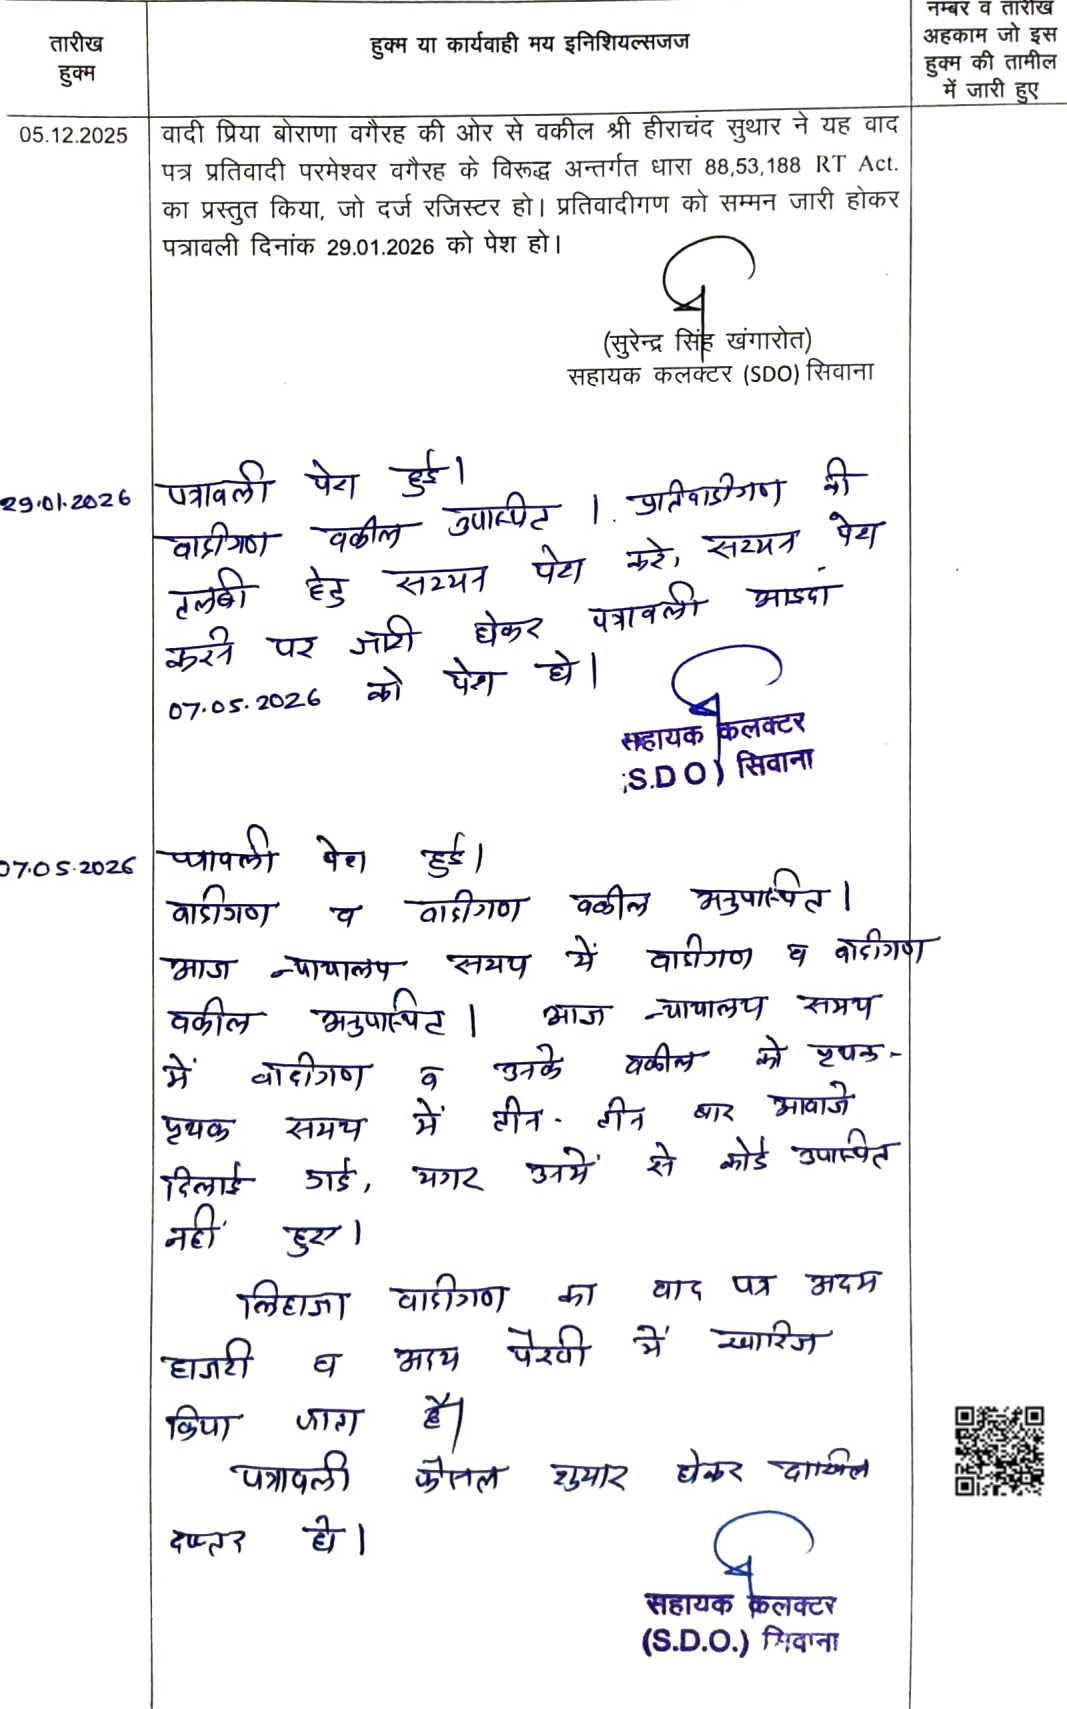 तारीख
हुक्म
हुक्म या कार्यवाही मय इनिशियल्सजज
नम्बर व तारीख
अहकाम जो इस
हुक्म की तामील
में जारी हुए
05.12.2025
वादी प्रिया बोराणा वगैरह की ओर से वकील श्री हीराचंद सुथार ने यह वाद
पत्र प्रतिवादी परमेश्वर वगैरह के विरूद्ध अन्तर्गत धारा 88,53,188 RT Act.
का प्रस्तुत किया, जो दर्ज रजिस्टर हो। प्रतिवादीगण को सम्मन जारी होकर
पत्रावली दिनांक 29.01.2026 को पेश हो।
(सुरेन्द्र सिंह खंगारोत)
सहायक कलक्टर (SDO) सिवाना
29.01.2026
पत्रावली पेश हुई।
वादीगण वकील उपस्थित । प्रतिवादीगण की
तलबी हेतु सम्मन पेश करे, सम्मन पेश
करने पर जारी होकर पत्रावली आइंदा
07.05.2026 को पेश हो।
सहायक कलक्टर
(S.D O) सिवाना
07.05.2026
पत्रावली पेश हुई।
वादीगण व वादीगण वकील अनुपस्थित।
आज न्यायालय समय में वादीगण व वादीगण
वकील अनुपस्थित। आज न्यायालय समय
में वादीगण व उनके वकील को पृथक-
पृथक समय में तीन- तीन बार आवाजे
दिलाई गई, मगर उनमें से कोई उपस्थित
नहीं हुए।
लिहाजा वादीगण का वाद पत्र अदम
हाजरी व अदम पैरवी में खारिज
किया जाता है।
पत्रावली फैसल शुमार होकर दाखिल
दफ्तर हो।
सहायक कलक्टर
(S.D.O.) सिवाना